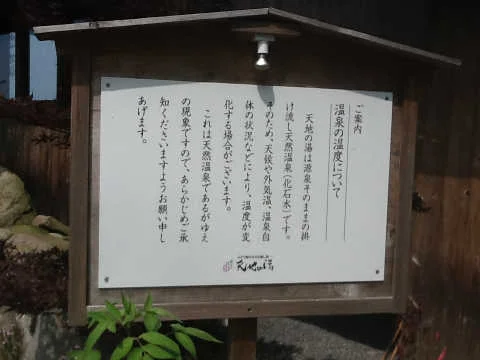 ご案内
温泉の温度について
天地の湯は源泉そのままの掛
け流し天然温泉(化石水)です。
そのため、天候や外気温、温泉自
体の状況などにより、温度が変
化する場合がございます。
これは天然温泉であるがゆえ
の現象ですので、あらかじめご承
知くださいますようお願い申し
あげます。
天地の湯